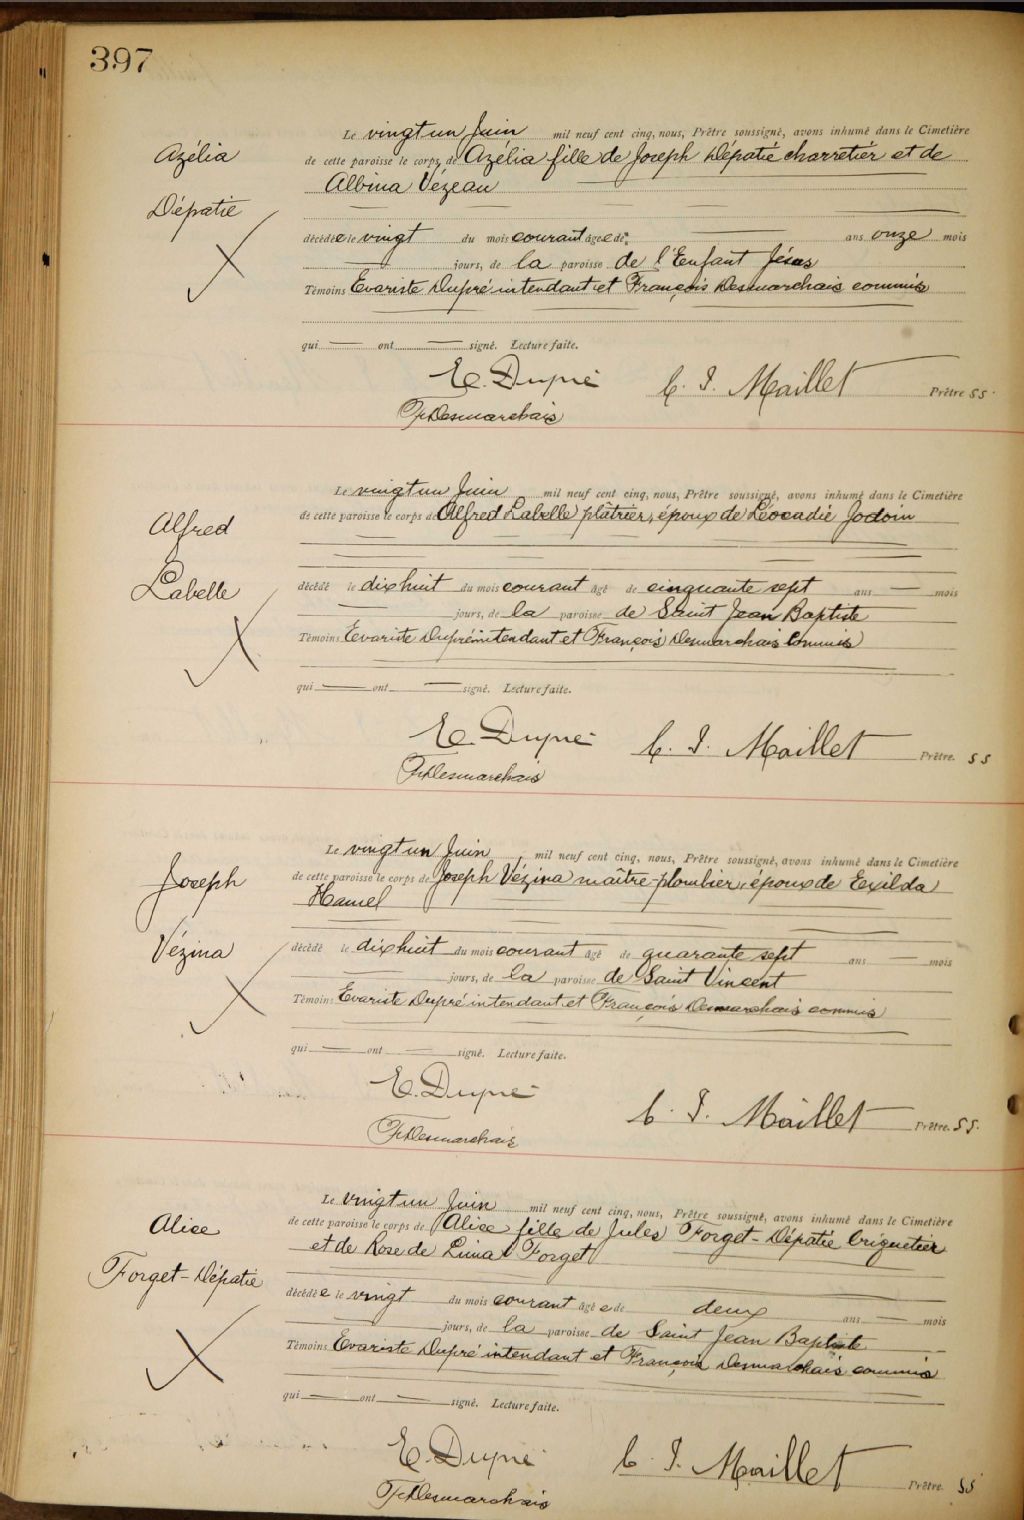 397
Azélia
Dépatie
Le vingt un Juin mil neuf cent cinq, nous, Prêtre soussigné, avons inhumé dans le Cimetière
de cette paroisse le corps de Azélia fille de Joseph Dépatie charretier et de
Albina Vézeau
décédée le vingt du mois courant âgée de ans onze mois
jours, de la paroisse de l'Eenfant Jésus
Témoins Evariste Dupré intendant et François Desmarchais commis
qui ont signé. Lecture faite.
E. Dupré
C. I. Maillet Prêtre SS.
Fr Desmarchais
Alfred
Labelle
Le vingt un Juin mil neuf cent cinq, nous, Prêtre soussigné, avons inhumé dans le Cimetière
de cette paroisse le corps de Alfred Labelle plâtrier, époux de Léocadie Jodoin
décédé le dix huit du mois courant âgé de cinquante sept ans mois
jours, de la paroisse de Saint Jean Baptiste
Témoins Evariste Dupré intendant et François Desmarchais Commis
qui ont signé. Lecture faite.
E. Dupré
C. I. Maillet Prêtre. SS
Fr Desmarchais
Joseph
Vézina
Le vingt un Juin, mil neuf cent cinq, nous, Prêtre soussigné, avons inhumé dans le Cimetière
de cette paroisse le corps de Joseph Vézina maître-plombier, époux de Exilda
Hamel
décédé le dix huit du mois courant âgé de quarante sept ans mois
jours, de la paroisse de Saint Vincent
Témoins Evariste Dupré intendant et François Desmarchais commis
qui ont signé. Lecture faite.
E. Dupré
C. I. Maillet Prêtre. SS.
Fr Desmarchais
Alice
Forget-Dépatie
Le vingt un Juin mil neuf cent cinq, nous, Prêtre soussigné, avons inhumé dans le Cimetière
de cette paroisse le corps de Alice fille de Jules Forget-Dépatie briquetier
et de Rose de Lima Forget
décédée le vingt du mois courant âgée de deux ans mois
jours, de la paroisse de Saint Jean Baptiste
Témoins Evariste Dupré intendant et François Desmarchais commis
qui ont signé. Lecture faite.
E. Dupré
C. I. Maillet Prêtre. SS
Fr Desmarchais